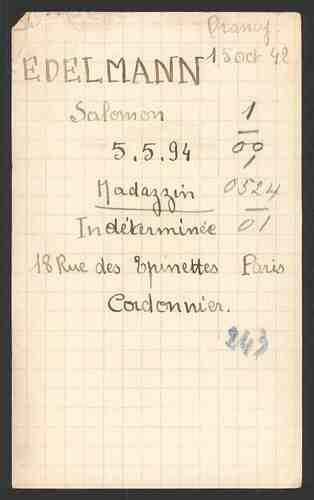 Drancy.
EDELMANN 15 oct 42
Salomon 1
5.5.94 00
1
Madazzin 0524
Indéterminée 01
18 Rue des Epinettes Paris
Cordonnier.
243